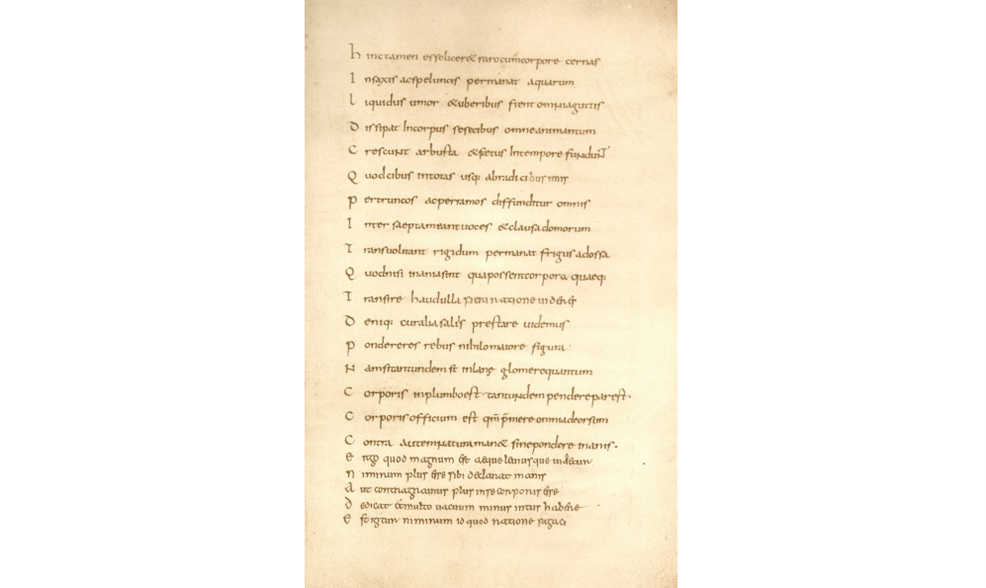 h inc tamen esse licet & raro cum corpore cernas
I nsaxis acspeluncis permanat aquarum
l iquidus umor &uberibus flent omniaguttis
D issipat Incorpus sesecibus omneanimantum
C rescunt arbusta &fetus Intempore fundunt
Q uodcibus intotas usq: abradicibus imis
P ertruncos acperramos diffunditur omnis
I nter saeptameantuoces &clausadomorum
T ransuolitant rigidum permanat frigusadossa
Q uodnisi inaniasint quapossentcorpora quaeq:
T ransire haudulla ratione uideres
D eniq: curaliasaliis prestare uidemus
P ondereres rebus nihilomaiore figura
N amsitantundem inlanae glomerequantum
C orporis inplumboest tantundem pendereparest.
C orporisofficium est qm p̄mere omniadeorsum
C ontra autemnaturamanet sinepondere inanis.
E rgo quod magnum est aeque leuiusque uidetur
N imirum plus esse sibi declarat inanis
A ut contragrauius plus inse corporis esse
D edicat &multo uacuum minus intus habere
E stigitur nimirum id quod ratione sagaci